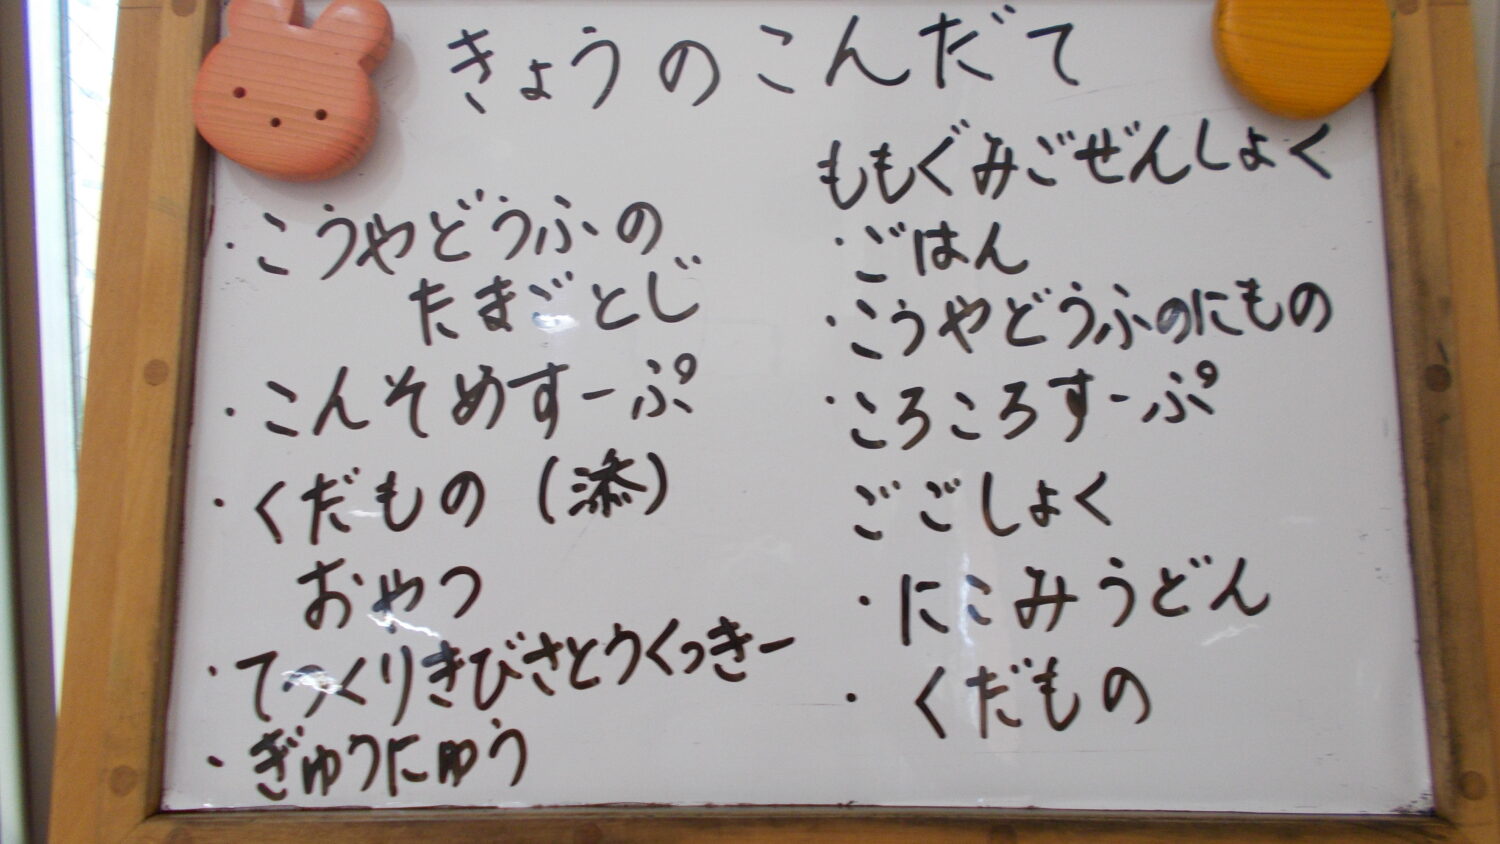 きょうのこんだて
・こうやどうふの
たまごとじ
・こんそめすーぷ
・くだもの(添)
おやつ
・てづくりきびさとうくっきー
・ぎゅうにゅう
ももぐみごぜんしょく
・ごはん
・こうやどうふのにもの
・ころころすーぷ
ごごしょく
・にこみうどん
・くだもの